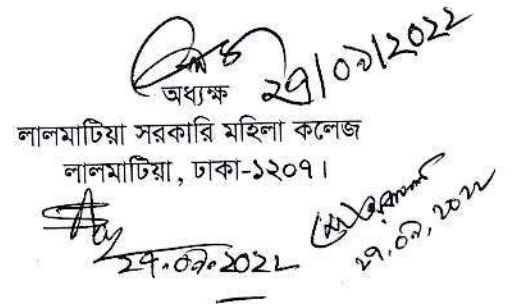 ২৭/০৯/২০২২
অধ্যক্ষ
লালমাটিয়া সরকারি মহিলা কলেজ
লালমাটিয়া, ঢাকা-১২০৭।
২৭.০৯.২০২২
২৭.০৯.২০২২